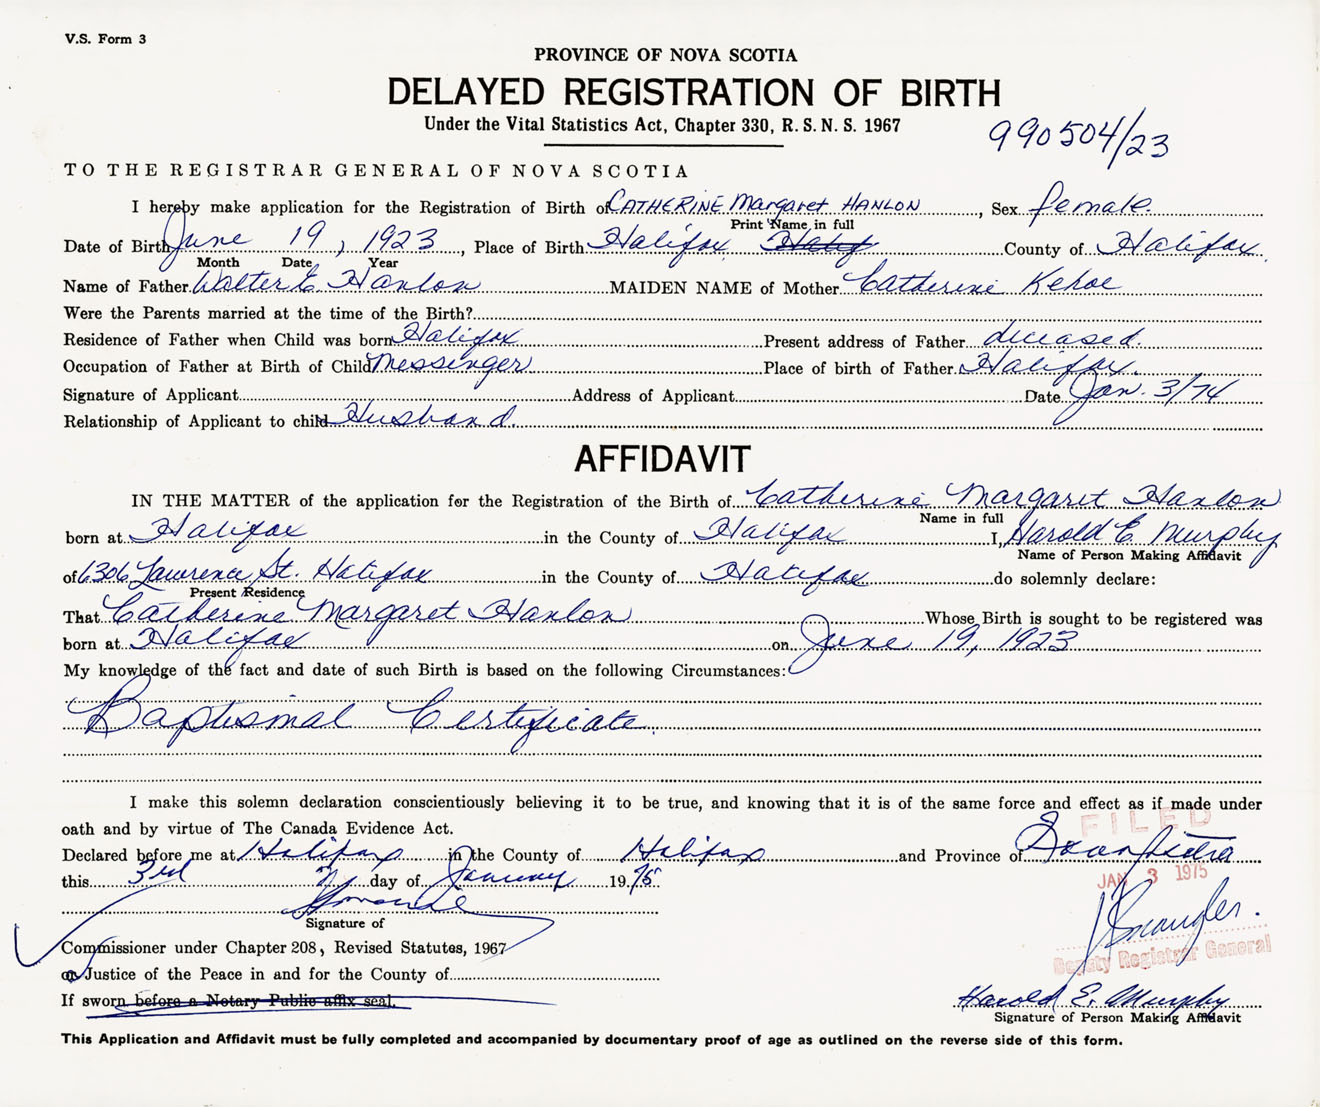 V.S. Form 3
PROVINCE OF NOVA SCOTIA
DELAYED REGISTRATION OF BIRTH
Under the Vital Statistics Act, Chapter 330, R. S. N. S. 1967
990504/23
TO THE REGISTRAR GENERAL OF NOVA SCOTIA
I hereby make application for the Registration of Birth of CATHERINE Margaret HANLON, Sex female
Print Name in full
Date of Birth June 19, 1923, Place of Birth Halifax County of Halifax
Month Date Year
Name of Father Walter E. Hanlon MAIDEN NAME of Mother Catherine Kehoe
Were the Parents married at the time of the Birth?
Residence of Father when Child was born Halifax Present address of Father deceased.
Occupation of Father at Birth of Child Messinger Place of birth of Father Halifax.
Signature of Applicant Address of Applicant Date Jan. 3/74
Relationship of Applicant to child Husband.
AFFIDAVIT
IN THE MATTER of the application for the Registration of the Birth of Catherine Margaret Hanlon
Name in full
born at Halifax in the County of Halifax I, Harold E. Murphy
Name of Person Making Affidavit
of 6306 Lawrence St. Halifax in the County of Halifax do solemnly declare:
Present Residence
That Catherine Margaret Hanlon Whose Birth is sought to be registered was
born at Halifax on June 19, 1923
My knowledge of the fact and date of such Birth is based on the following Circumstances:
Baptismal Certificate.
I make this solemn declaration conscientiously believing it to be true, and knowing that it is of the same force and effect as if made under
oath and by virtue of The Canada Evidence Act.
FILED
Declared before me at Halifax in the County of Halifax and Province of Nova Scotia
this 3rd day of January 1975
JAN 3 1975
Signature of
Commissioner under Chapter 208, Revised Statutes, 1967
Deputy Registrar General
or Justice of the Peace in and for the County of
If sworn before a Notary Public affix seal.
Harold E. Murphy
Signature of Person Making Affidavit
This Application and Affidavit must be fully completed and accompanied by documentary proof of age as outlined on the reverse side of this form.